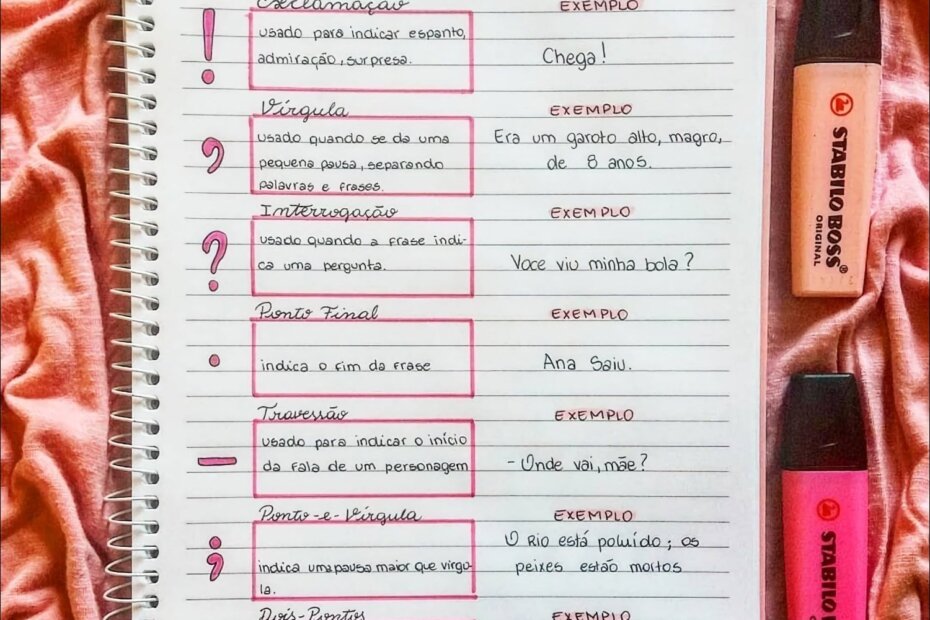 Exclamação
EXEMPLO
!
usado para indicar espanto,
admiração, surpresa.
Chega!
Vírgula
EXEMPLO
,
usado quando se da uma
pequena pausa, separando
palavras e frases.
Era um garoto alto, magro,
de 8 anos.
Interrogação
EXEMPLO
?
usado quando a frase indi-
ca uma pergunta.
Voce viu minha bola?
Ponto Final
EXEMPLO
.
indica o fim da frase
Ana Saiu.
Travessão
EXEMPLO
—
usado para indicar o início
da fala de um personagem
- Onde vai, mãe?
Ponto-e-Vírgula
EXEMPLO
;
indica uma pausa maior que virgu-
la.
O Rio está poluído; os
peixes estão mortos
Dois-Pontos
EXEMPLO
STABILO BOSS®
ORIGINAL
STABILO